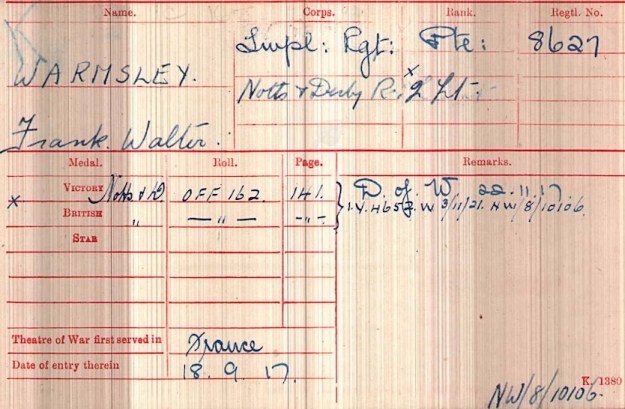 Name. Corps. Rank. Regtl. No.
WARMSLEY. Impl: Rgt: Pte: 8627
Notts & Derby R. x 2/Lt.
Frank Walter.
Medal. Roll. Page. Remarks.
x VICTORY Notts & D. OFF 162 141. D. of W. 22.11.17
BRITISH " — " — - " - W 3/11/21. NW/8/10106.
STAR
Theatre of War first served in France
Date of entry therein 18. 9. 17.
K. 1380
NW/8/10106.